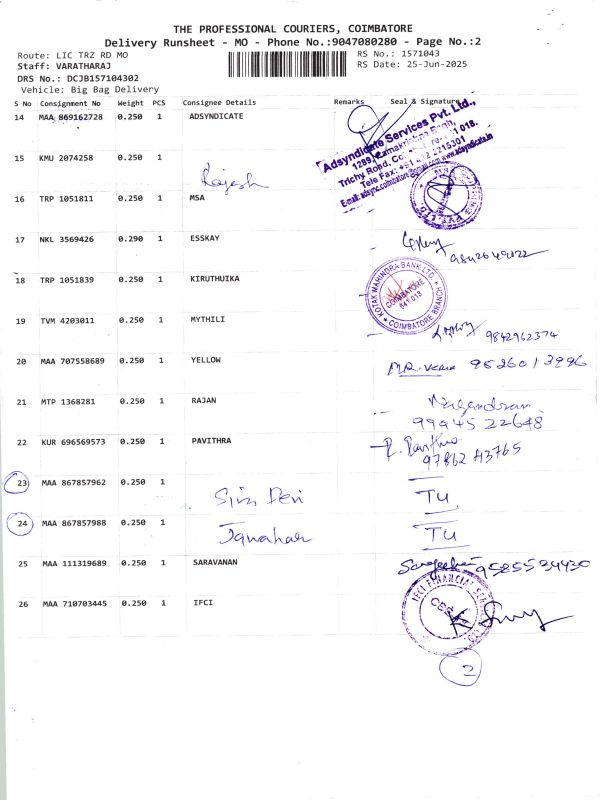 THE PROFESSIONAL COURIERS, COIMBATORE
Delivery Runsheet - MO - Phone No.:9047080280 - Page No.:2
Route: LIC TRZ RD MO
RS No.: 1571043
Staff: VARATHARAJ
RS Date: 25-Jun-2025
DRS No.: DCJB157104302
Vehicle: Big Bag Delivery
S No Consignment No Weight PCS Consignee Details Remarks Seal & Signature
14 MAA 869162728 0.250 1 ADSYNDICATE
Adsyndicate Services Pvt. Ltd.,
15 KMU 2074258 0.250 1
Rajesh
16 TRP 1051811 0.250 1 MSA
17 NKL 3569426 0.290 1 ESSKAY
18 TRP 1051839 0.250 1 KIRUTHUIKA
KOTAK MAHINDRA BANK LTD.
COIMBATORE
641 018
COIMBATORE BRANCH
19 TVM 4203011 0.250 1 MYTHILI
9842962374
20 MAA 707558689 0.250 1 YELLOW
21 MTP 1368281 0.250 1 RAJAN
Nagendran
99445 22648
22 KUR 696569573 0.250 1 PAVITHRA
23 MAA 867857962 0.250 1
Devi
TU
24 MAA 867857988 0.250 1
Jawahar
TU
25 MAA 111319689 0.250 1 SARAVANAN
26 MAA 710703445 0.250 1 IFCI
2